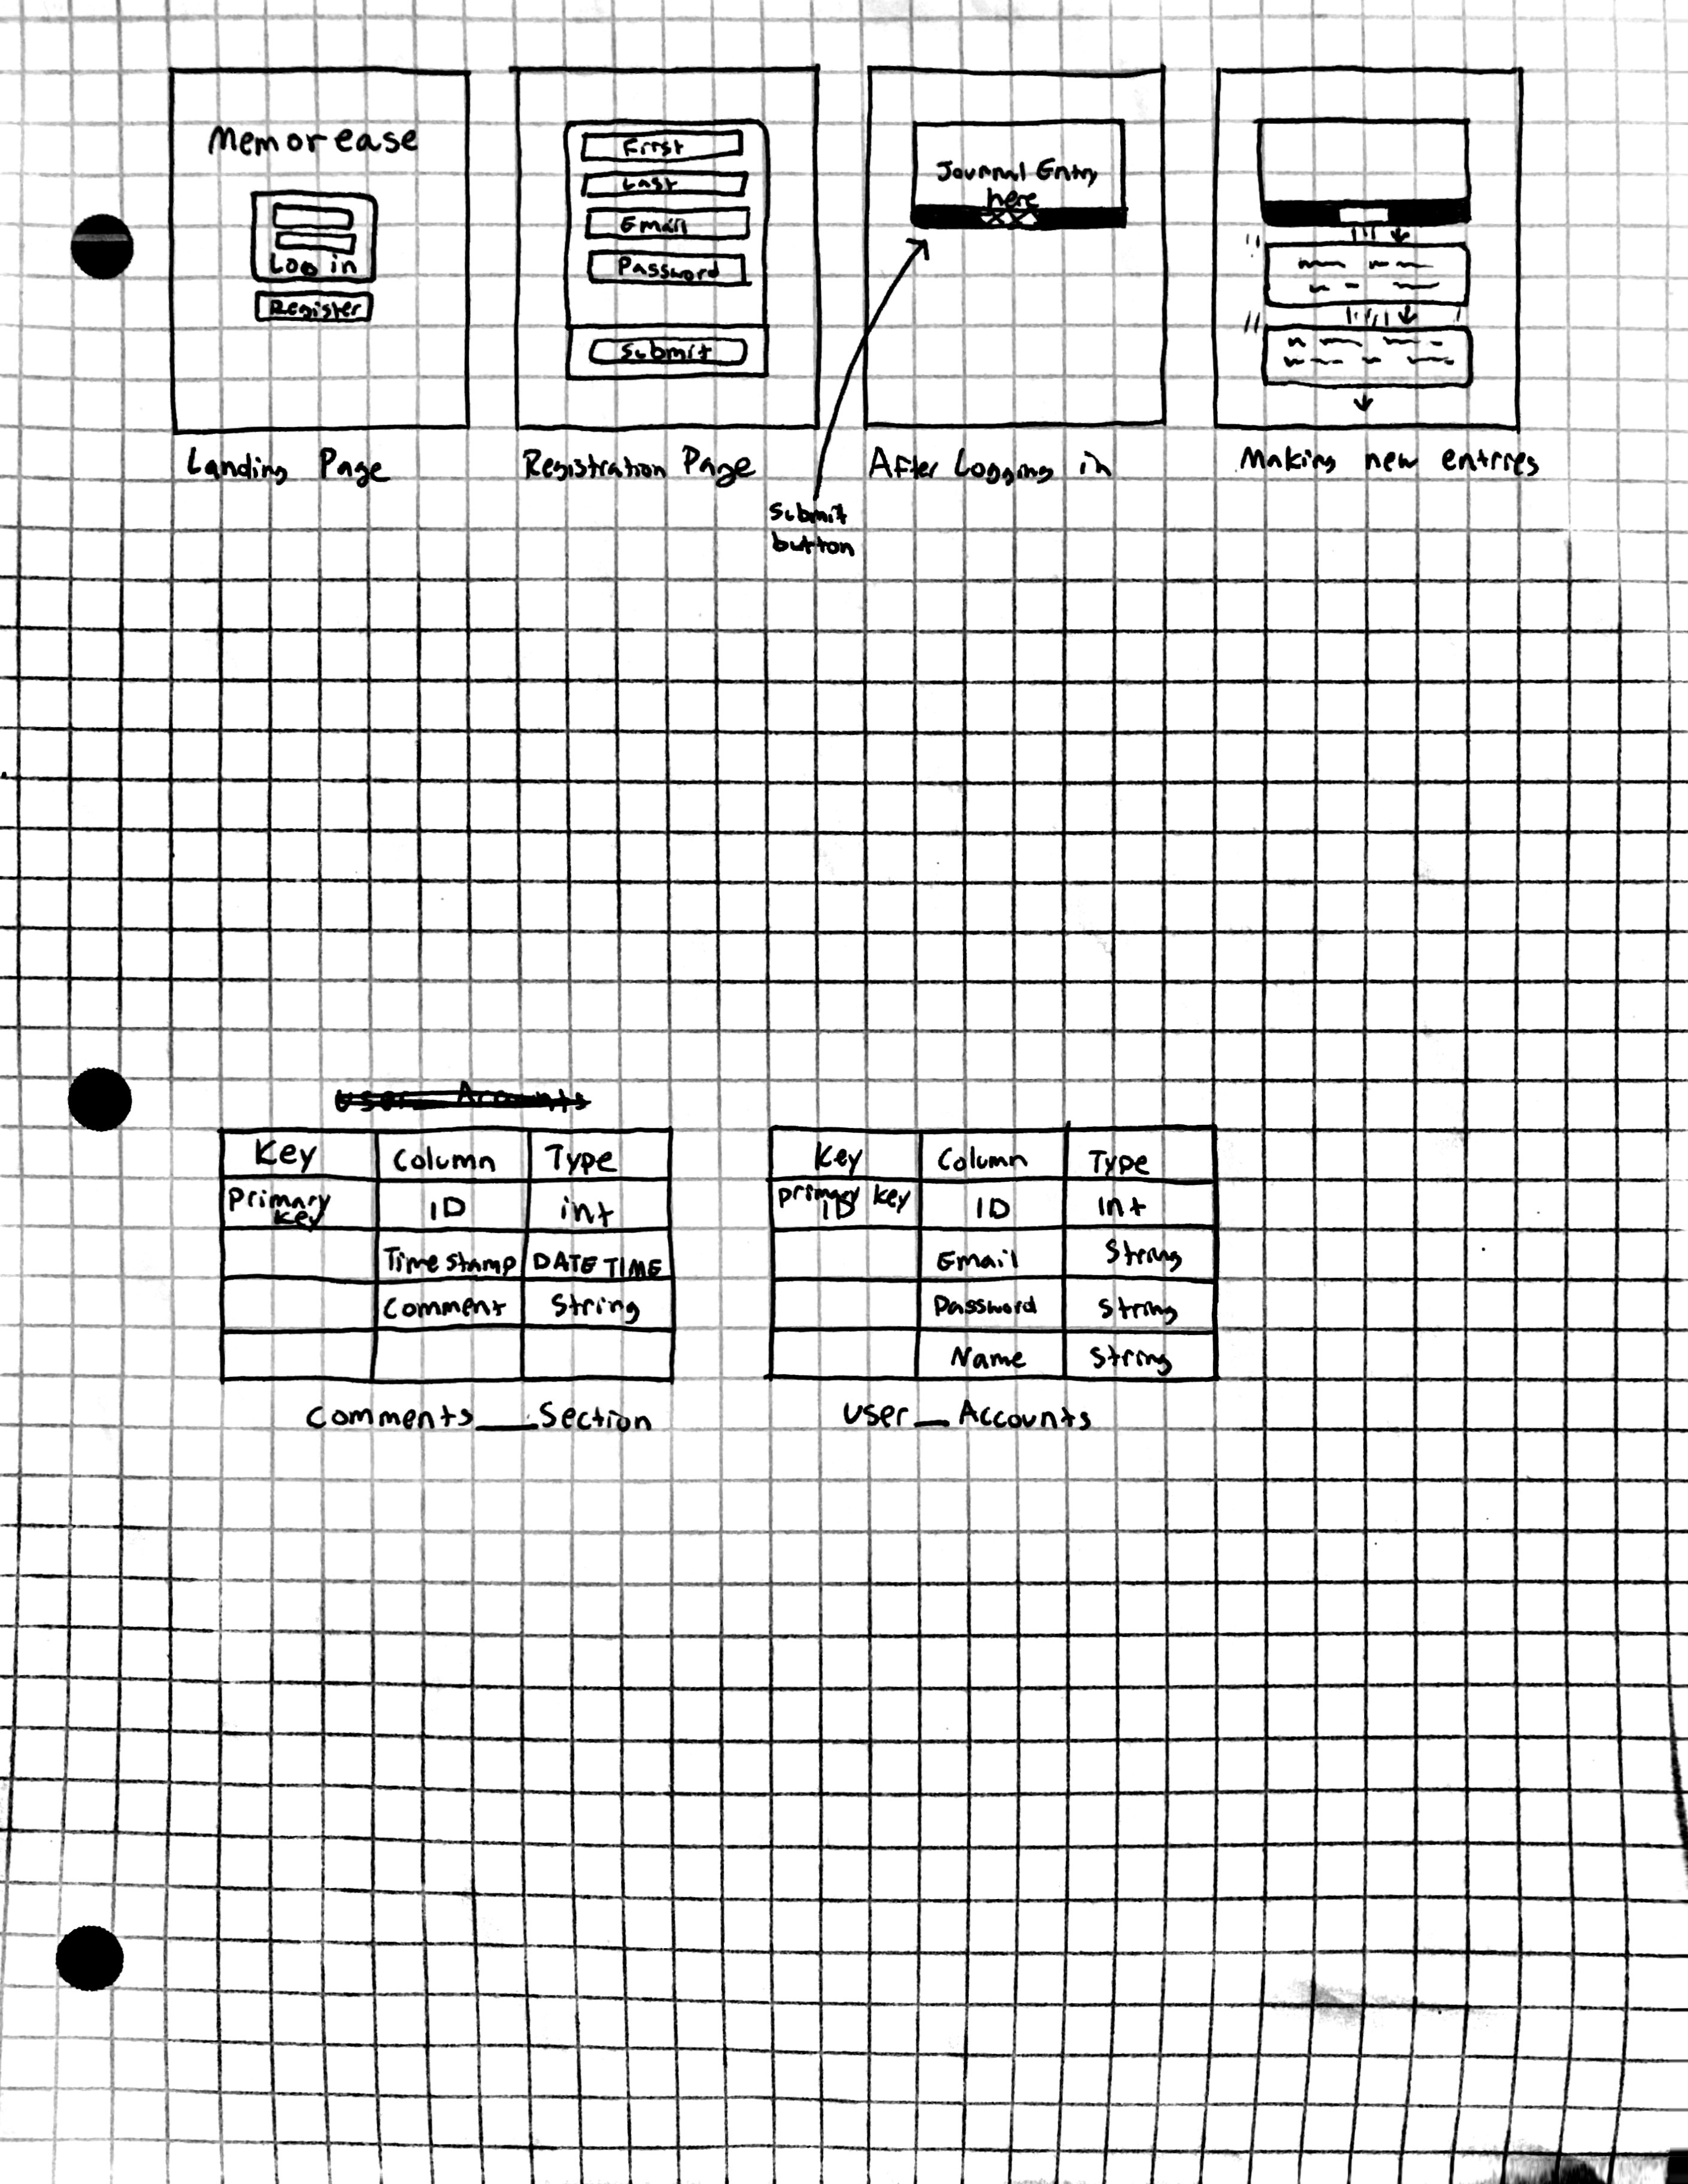 Memorease
Log in
Register
Landing Page
First
Last
Email
Password
Submit
Registration Page
Journal Entry
here
After Logging in
Submit
button
Making new entries
User Accounts
Key Column Type
Primary
Key
ID int
Time stamp DATE TIME
Comment String
Comments__Section
Key Column Type
primary key
ID
ID Int
Email String
Password String
Name String
User_Accounts